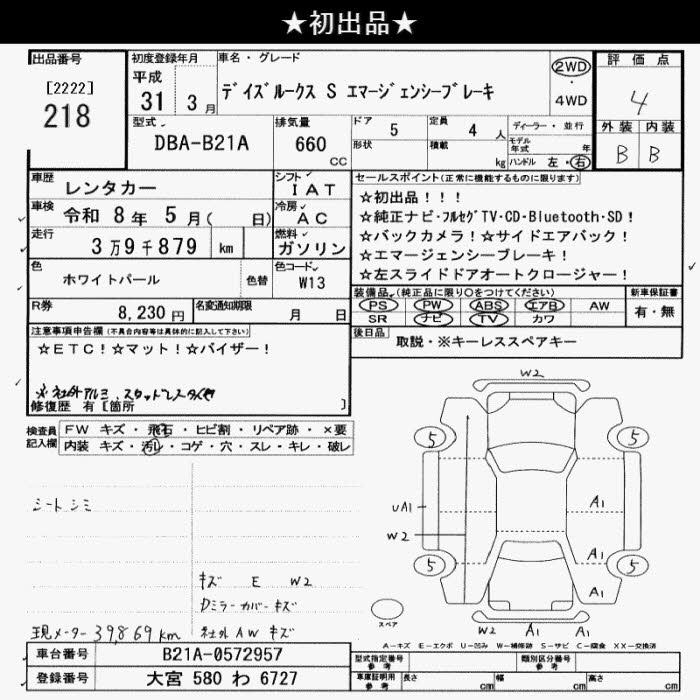 ★初出品★
出品番号
[2222]
218
初度登録年月
平成
31 3月
車名・グレード
デイズルークス S エマージェンシーブレーキ
2WD
・
4WD
評価点
4
外装 内装
B B
型式
DBA-B21A
排気量
660
CC
ドア
5
形状
定員
4 人
積載
kg
ディーラー・並行
モデル
年式 年
ハンドル 左・右
車歴
レンタカー
シフト
IAT
車検
令和 8年 5月( 日)
冷房
AC
走行
3万9千879 km
燃料
ガソリン
色
ホワイトパール
色替
色コード
W13
R券
8,230円
名変通知期限
月 日
セールスポイント(正常に機能するものに限ります)
☆初出品!!!
☆純正ナビ・フルセグTV・CD・Bluetooth・SD!
☆バックカメラ!☆サイドエアバック!
☆エマージェンシーブレーキ!
☆左スライドドアオートクロージャー!
装備品(純正品に限り○をつけてください)
PS PW ABS エアB AW
SR ナビ TV カワ
新車保証書
有・無
後日品
取説・※キーレススペアキー
注意事項申告欄(不具合内容等は具体的に記入して下さい)
☆ETC!☆マット!☆バイザー!
※社外アルミ、スタッドレスタイヤ
修復歴 有[箇所 ]
検査員
記入欄
FW キズ・飛石・ヒビ割・リペア跡・×要
内装 キズ・汚レ・コゲ・穴・スレ・キレ・破レ
シートシミ
キズ E W2
Dミラーカバーキズ
現メーター 39,869km
社外AWキズ
W2
5
5
UA1
A1
W2
A1
5
5
A1
スペア
W2 A1 A1
A-キズ E-エクボ U-凹み W-補修跡 S-サビ C-腐食 XX-交換済
車台番号
B21A-0572957
登録番号
大宮 580 わ 6727
型式指定番号
参考
類別区分番号
参考
車庫証明用
参考
長さ
cm
幅
cm
高さ
cm